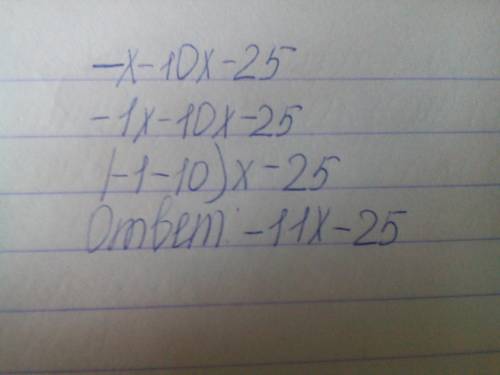 -x-10x-25
-1x-10x-25
(-1-10)x-25
Ответ: -11x-25